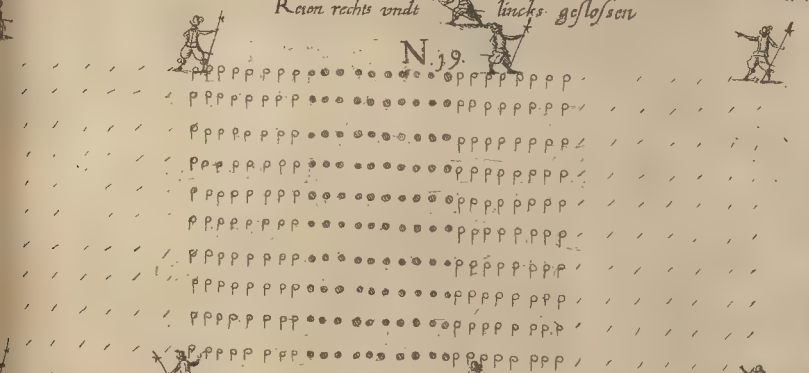 Reien rechts vndt lincks geslossen
N. 19.
p p p p p p p p ● ● ● ● ● ● ● ● ● ● p p p p p p p p
p p p p p p p p ● ● ● ● ● ● ● ● ● ● p p p p p p p p
p p p p p p p p ● ● ● ● ● ● ● ● ● ● p p p p p p p p
p p p p p p p p ● ● ● ● ● ● ● ● ● ● p p p p p p p p
p p p p p p p p ● ● ● ● ● ● ● ● ● ● p p p p p p p p
p p p p p p p p ● ● ● ● ● ● ● ● ● ● p p p p p p p p
p p p p p p p p ● ● ● ● ● ● ● ● ● ● p p p p p p p p
p p p p p p p p ● ● ● ● ● ● ● ● ● ● p p p p p p p p
p p p p p p p p ● ● ● ● ● ● ● ● ● ● p p p p p p p p
p p p p p p p p ● ● ● ● ● ● ● ● ● ● p p p p p p p p